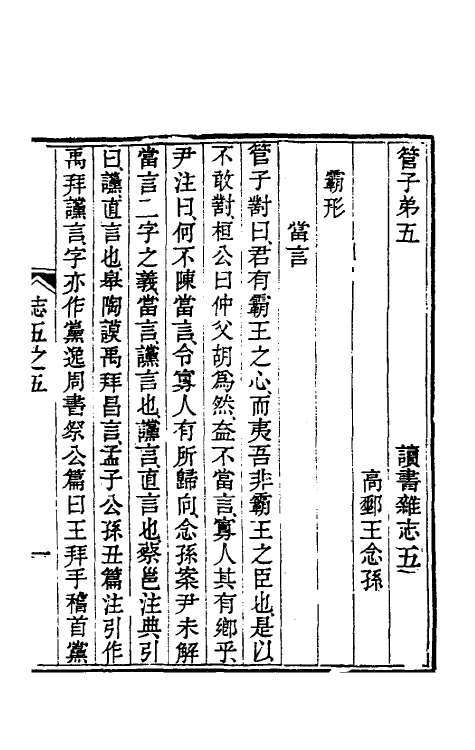 管子弟五　讀書雜志五
高郵王念孫
霸形
當言
管子對曰君有霸王之心而夷吾非霸王之臣也是以
不敢對桓公曰仲父胡爲然盍不當言寡人其有鄉乎
尹注曰何不陳當言令寡人有所歸向念孫案尹未解
當言二字之義當言讜言也讜言直言也蔡邕注典引
曰讜直言也皋陶謨禹拜昌言孟子公孫丑篇注引作
禹拜讜言字亦作黨逸周書祭公篇曰王拜手稽首黨
志五之五　一